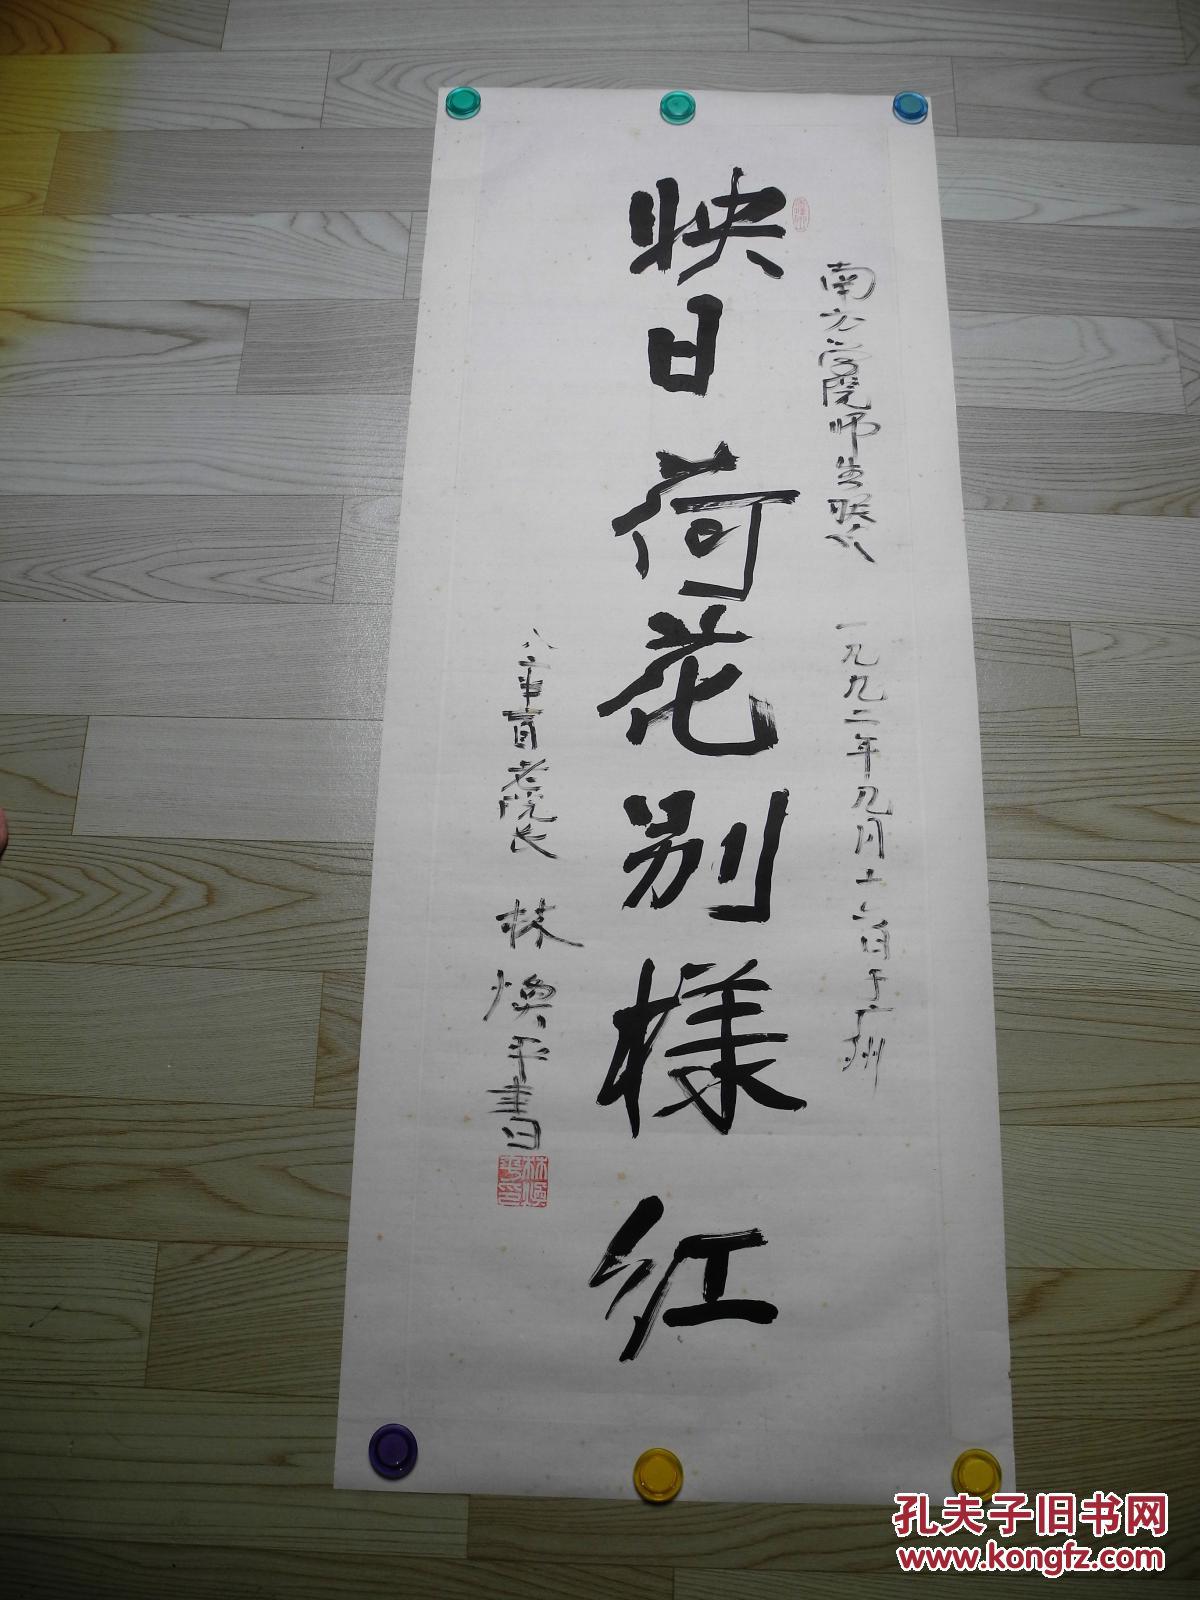 南方学院师生联欢 一九九二年九月十六日于广州
映日荷花别样红
八二年盲老院长 林焕平书
林焕平印
孔夫子旧书网
www.kongfz.com